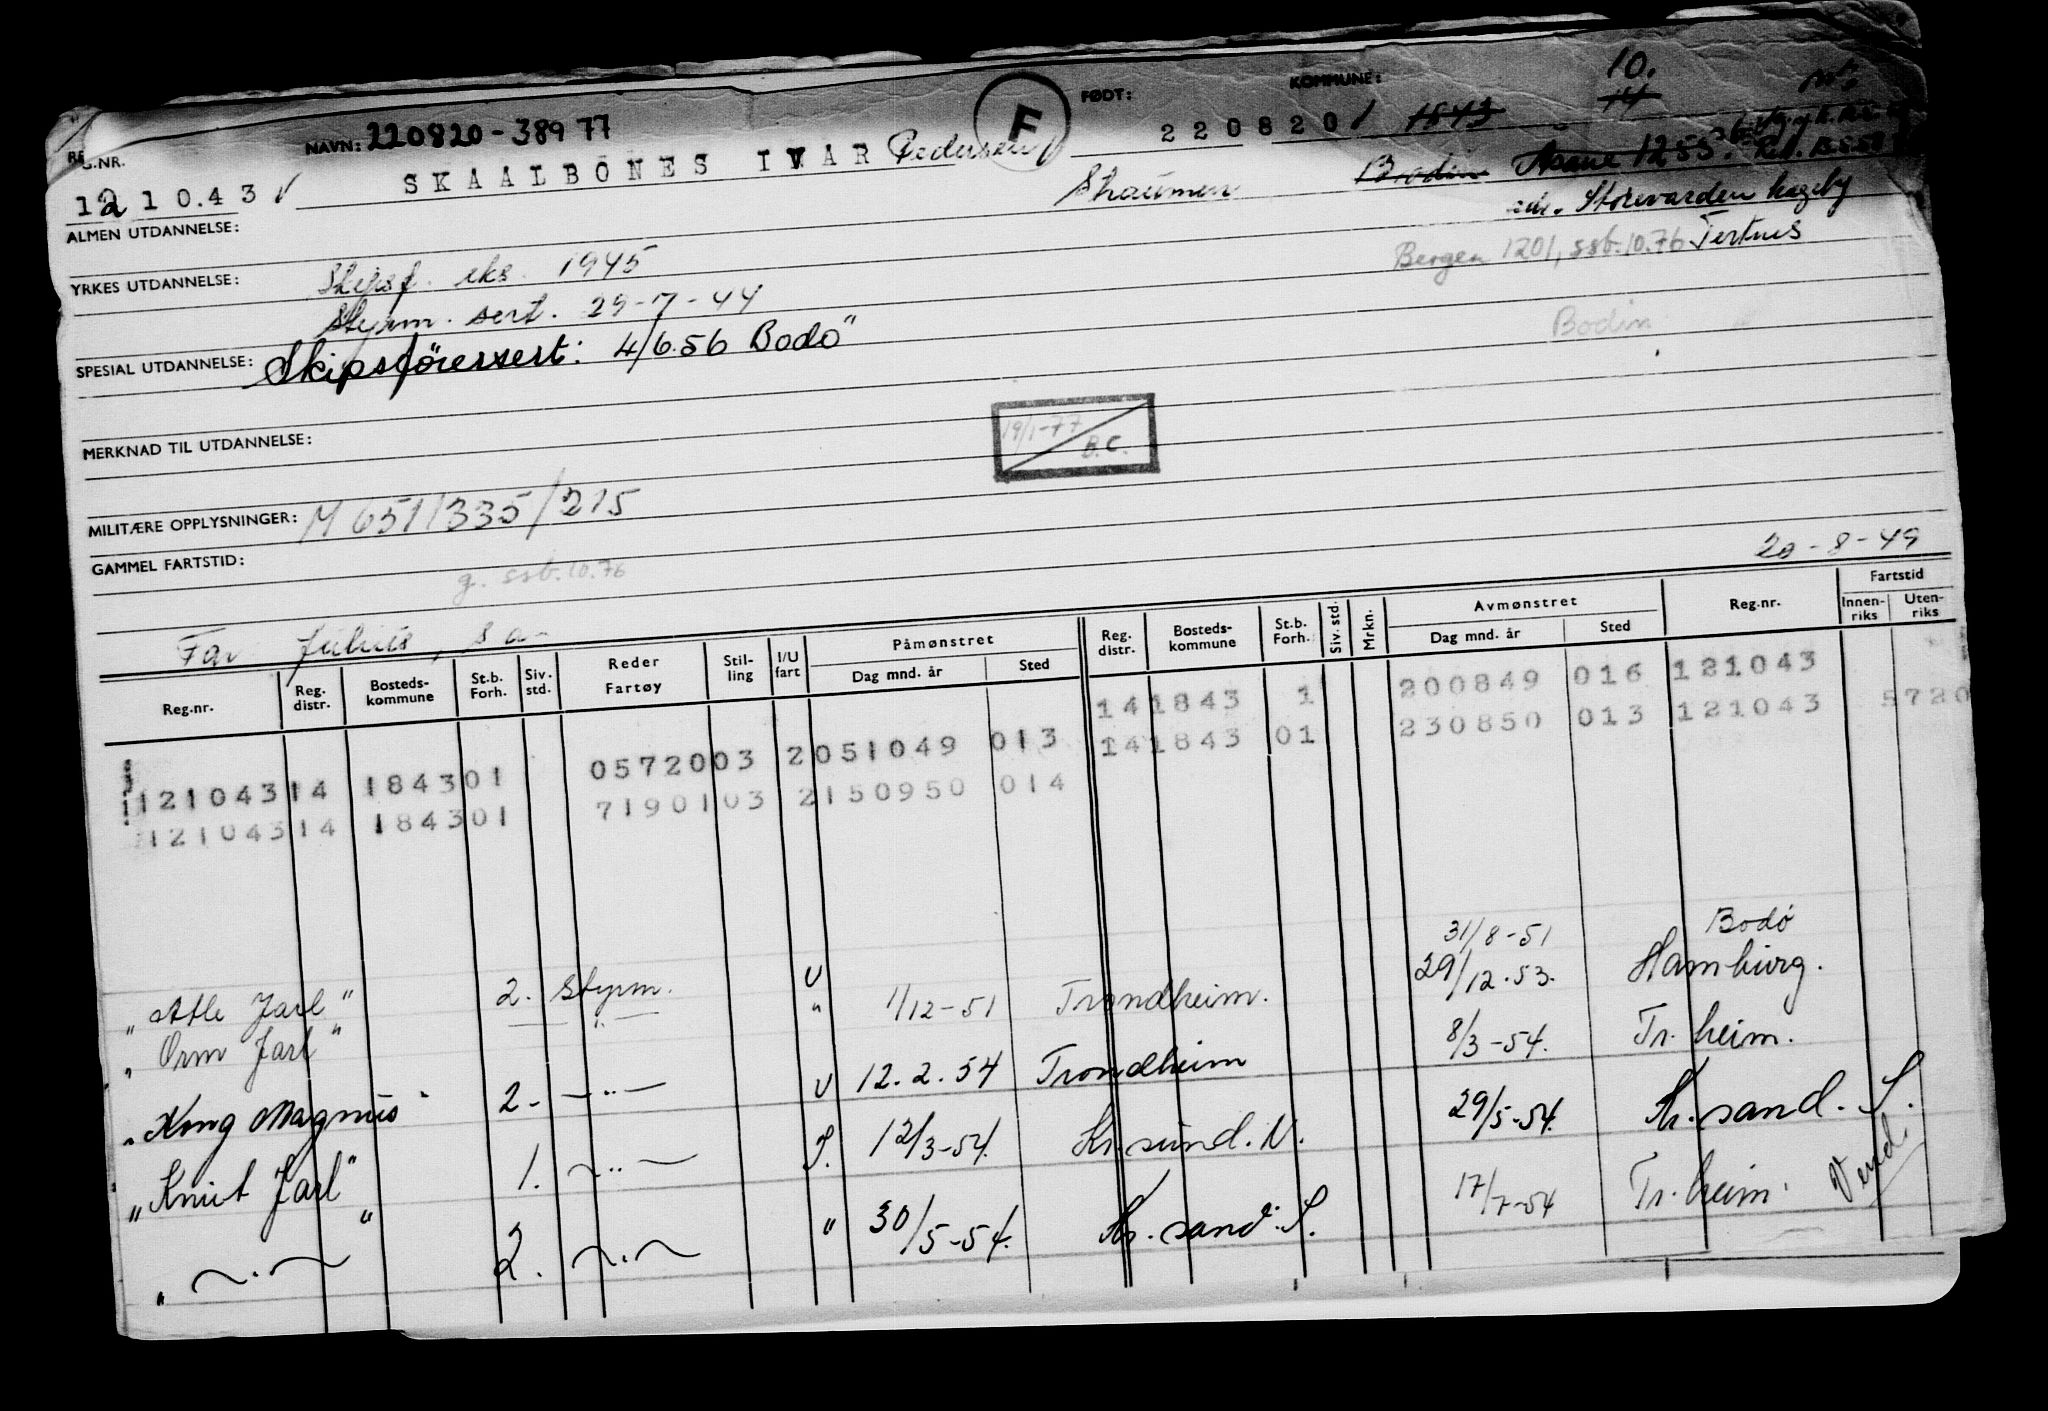 NAVN: 220820-38977
F
FØDT:
KOMMUNE:
10.
14
G.NR.
121043
SKAALBÖNES IVAR Pedersen
220820
1843
Bodin
Aasane 1255.
Skaumen
adr. Storevarden hageby
Tertnes
Bergen 1201, ssb. 10.76
Bodin
ALMEN UTDANNELSE:
YRKES UTDANNELSE: Skipsf. eks. 1945
Styrm. sert. 29-7-44
SPESIAL UTDANNELSE: Skipsförersert: 4/6.56 Bodö
MERKNAD TIL UTDANNELSE:
19/1-77 B.C.
MILITÆRE OPPLYSNINGER: M 651/335/215
GAMMEL FARTSTID:
g. ssb. 10.76
20-8-49
Far Julius, s a-
Reg.nr. Reg. distr. Bosteds-kommune St.b. Forh. Siv. std. Reder Fartøy Stil-ling I/U fart Påmønstret Dag mnd. år Sted Reg. distr. Bosteds-kommune St.b. Forh. Siv. std. Mrkn. Avmønstret Dag mnd. år Sted Reg.nr. Fartstid Innen-riks Uten-riks
141843 1 200849 016 121043
12104314 184301 0572003 2051049 013 141843 01 230850 013 121043 5720
12104314 184301 7190103 2150950 014
"Atle Jarl" 2. Styrm. U 31/8-51 Bodö
"Orm Jarl" —"— " 1/12-51 Trondheim. 29/12.53. Hamburg.
"Kong Magnus" 2. —"— U 12.2.54 Trondheim 8/3-54. Tr.heim.
"Knut Jarl" 1. —"— I. 12/3-54. Kr.sund. N. 29/5-54. Kr.sand. S.
" —"— " 2. —"— " 30/5-54. Kr.sand. S. 17/7-54 Tr.heim. Vend.